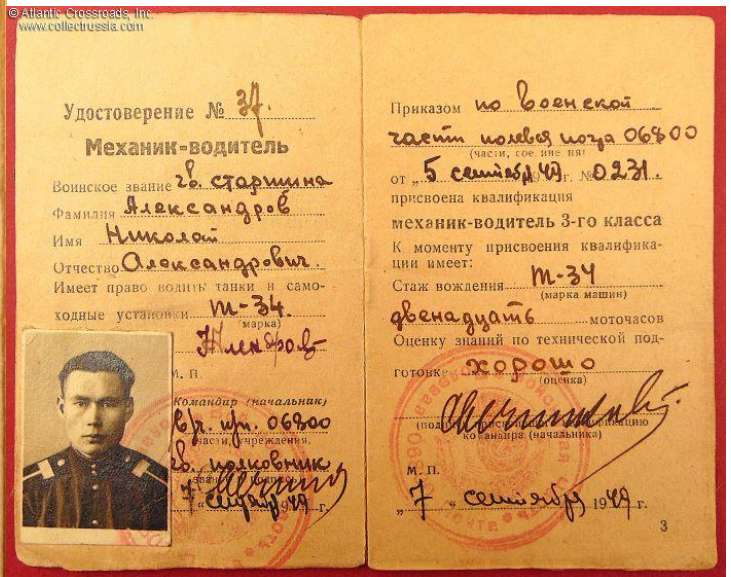 © Atlantic Crossroads, Inc.
www.collectrussia.com
Удостоверение № 37.
Механик-водитель
Воинское звание гв. старшина
Фамилия Александров
Имя Николай
Отчество Александрович.
Имеет право водить танки и само-
ходные установки Т-34.
(марка)
М. П.
Командир (начальник)
в/ч. пп. 06800
(части, учреждения,
гв. полковник
7 сентября 1949 г.
Приказом по Военской
части полевая почта 06800
(части, соединения)
от „5 сентября 1949 г. № 0231.
присвоена квалификация
механик-водитель 3-го класса
К моменту присвоения квалифика-
ции имеет:
Стаж вождения Т-34
(марка машин)
двенадцать моточасов
Оценку знаний по технической под-
готовке хорошо
(оценка)
командира (начальника)
М. П.
„7" сентября 1949 г.
3